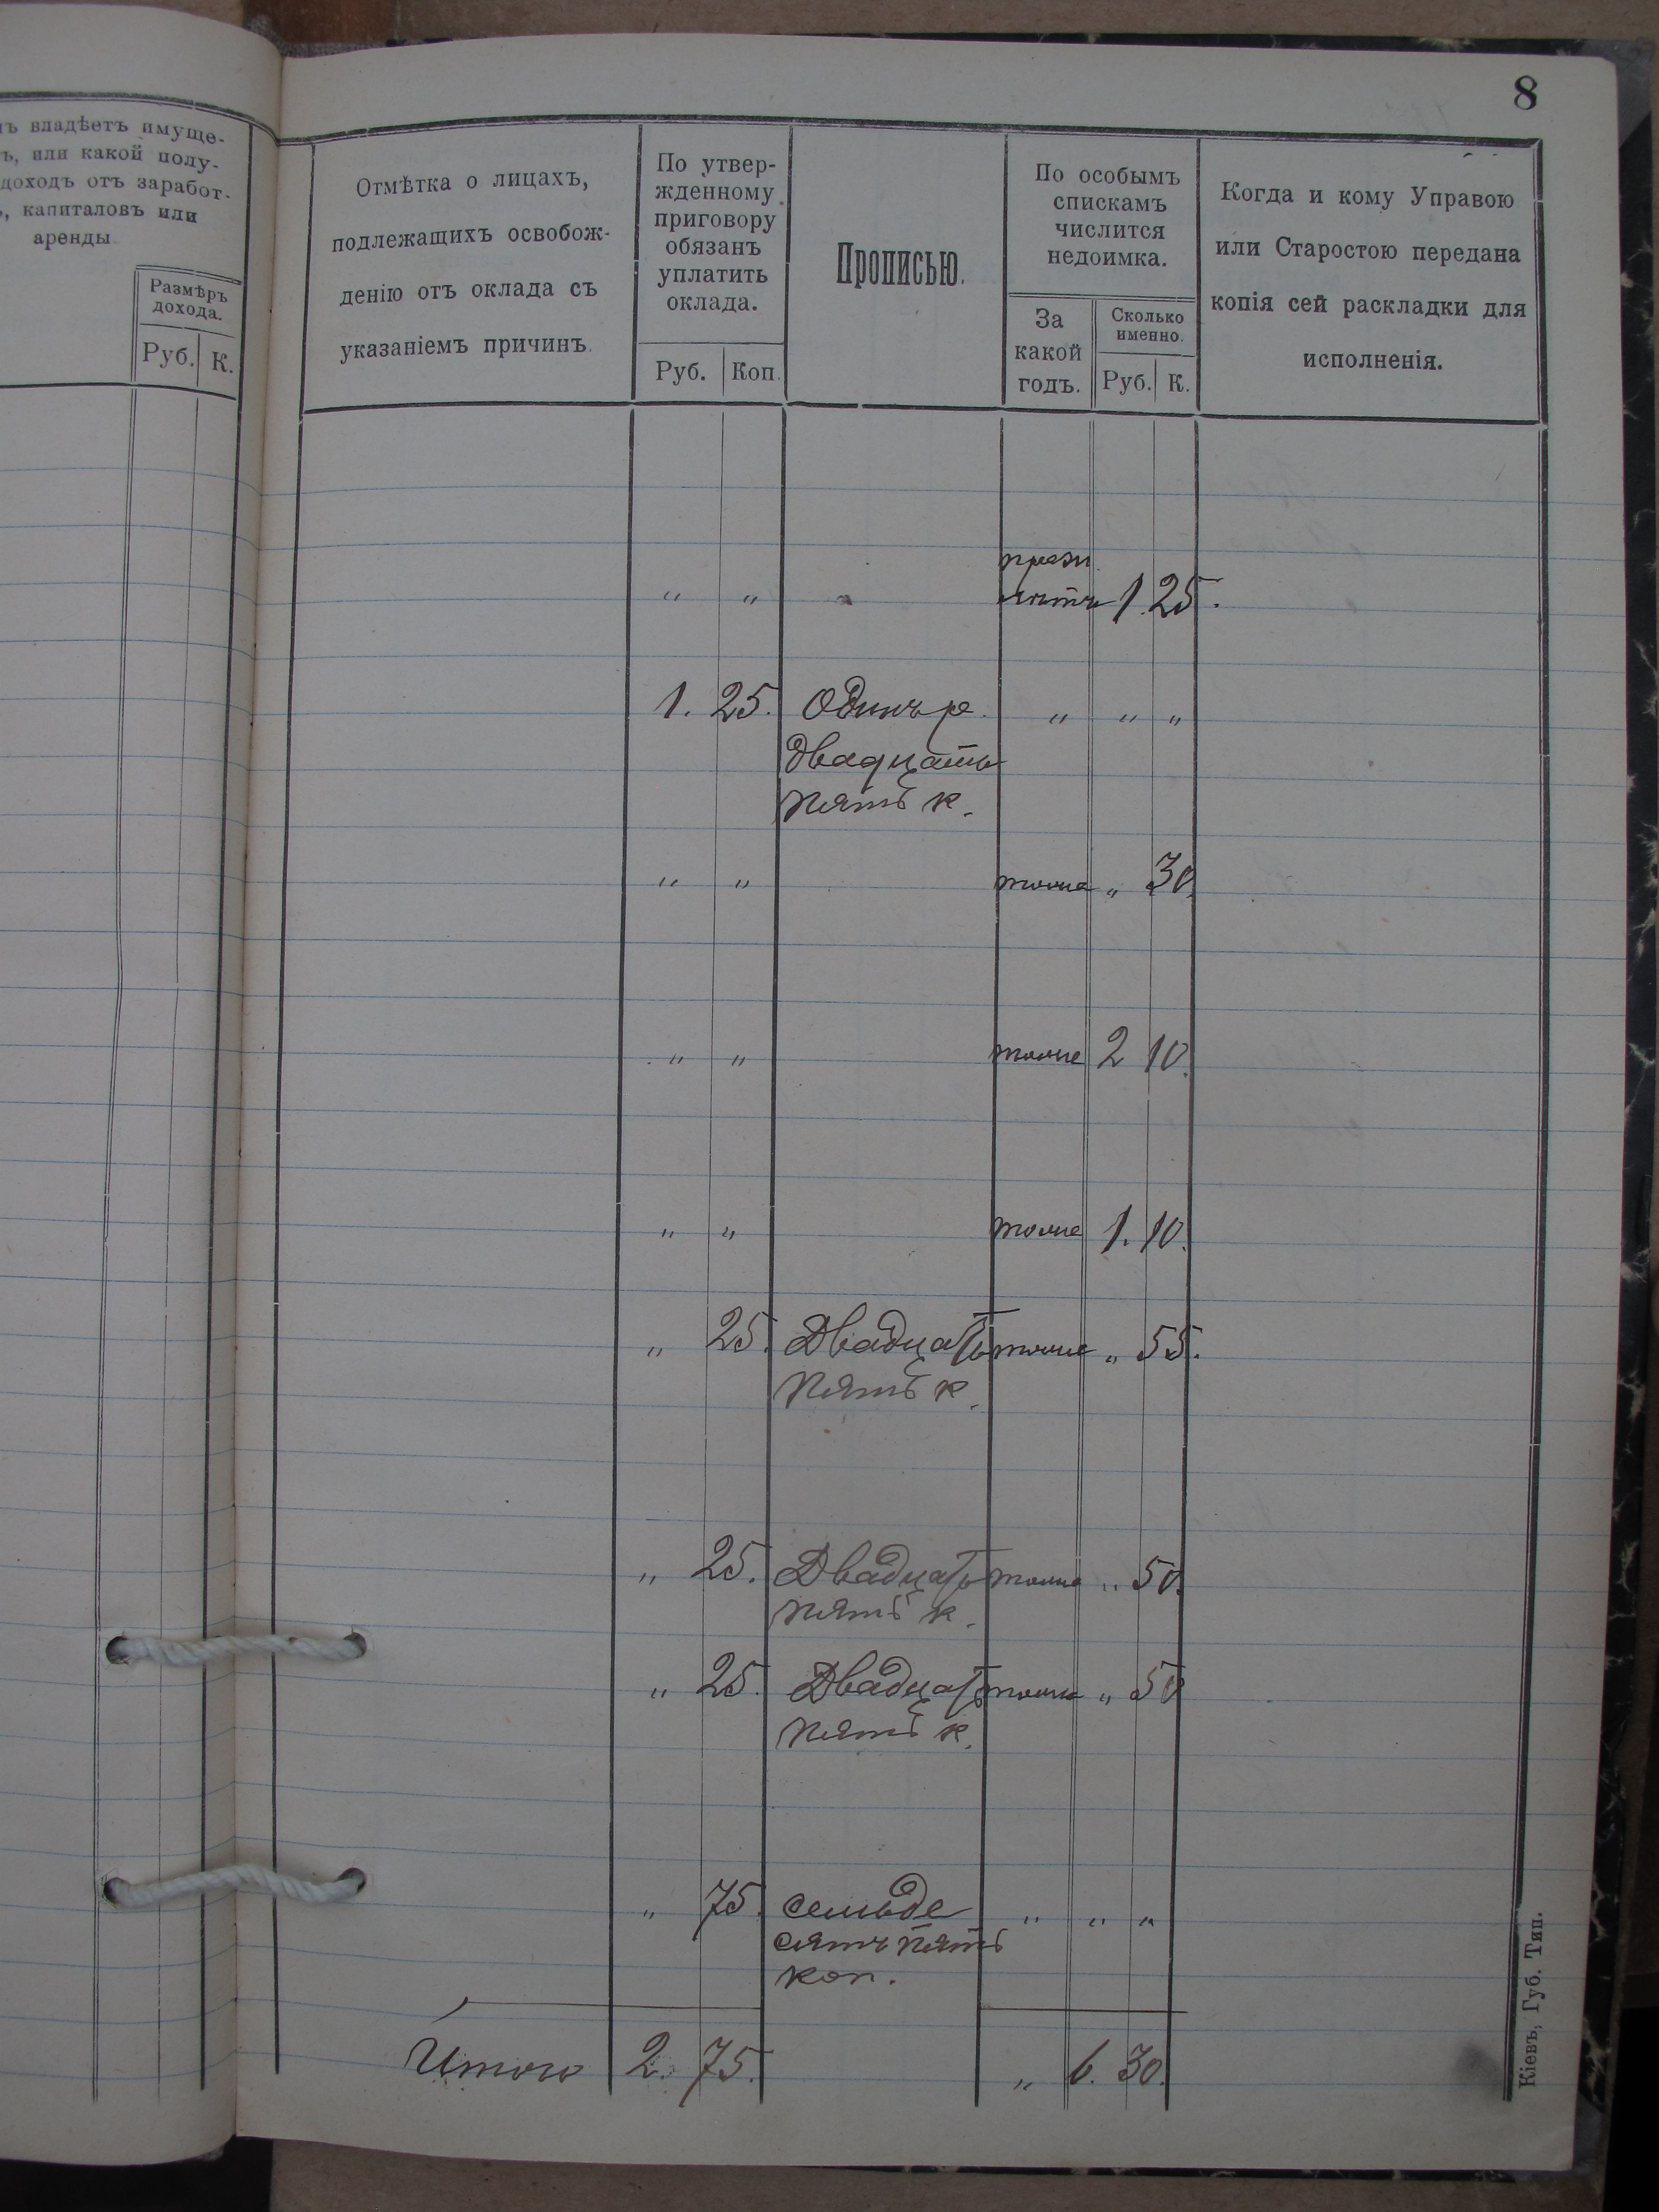 8
ъ владѣетъ имуще-
ъ, или какой полу-
доходъ отъ заработ-
, капиталовъ или
аренды.
Размѣръ
дохода.
Руб. К.
Отмѣтка о лицахъ,
подлежащихъ освобож-
денію отъ оклада съ
указаніемъ причинъ.
По утвер-
жденному
приговору
обязанъ
уплатить
оклада.
Руб. Коп.
Прописью.
По особымъ
спискамъ
числится
недоимка.
За
какой
годъ.
Сколько
именно.
Руб. К.
Когда и кому Управою
или Старостою передана
копія сей раскладки для
исполненія.
" " " 1. 25.
1. 25. Одинъ р. " " "
двадцать
пять к.
" " тоже " 30.
" " тоже 2 10.
" " тоже 1. 10.
" 25. Двадцать тоже " 55.
пять к.
" 25. Двадцать тоже " 50.
пять к.
" 25. Двадцать тоже " 50
пять к.
" 75. семьде " " "
сятъ пять
коп.
Итого 2. 75. " 6. 30.
Кіевъ, Губ. Тип.